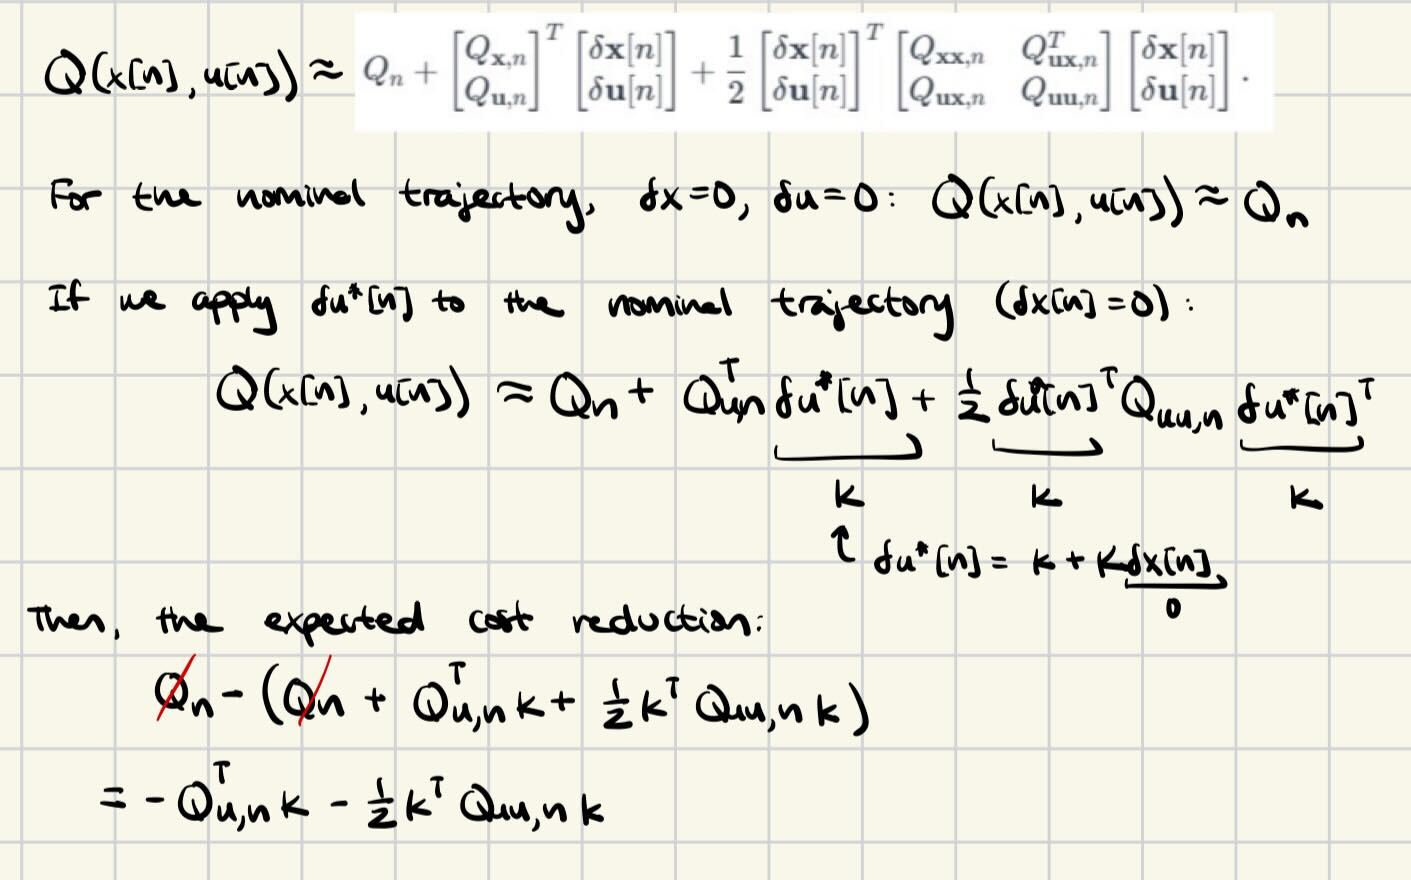 Q(x[n], u[n]) ≈ Qₙ + [Qx,n; Qu,n]ᵀ [δx[n]; δu[n]] + 1/2 [δx[n]; δu[n]]ᵀ [Qxx,n Qᵀux,n; Qux,n Quu,n] [δx[n]; δu[n]].
For the nominal trajectory, δx=0, δu=0: Q(x[n], u[n]) ≈ Qn
If we apply δu*[n] to the nominal trajectory (δx[n]=0):
Q(x[n], u[n]) ≈ Qn + Qᵀu,n δu*[n] + 1/2 δu*[n]ᵀ Quu,n δu*[n]ᵀ
k k k
↑ δu*[n] = k + Kδx[n]
0
Then, the expected cost reduction:
Qn - (Qn + Qᵀu,n k + 1/2 kᵀ Quu,n k)
= - Qᵀu,n k - 1/2 kᵀ Quu,n k